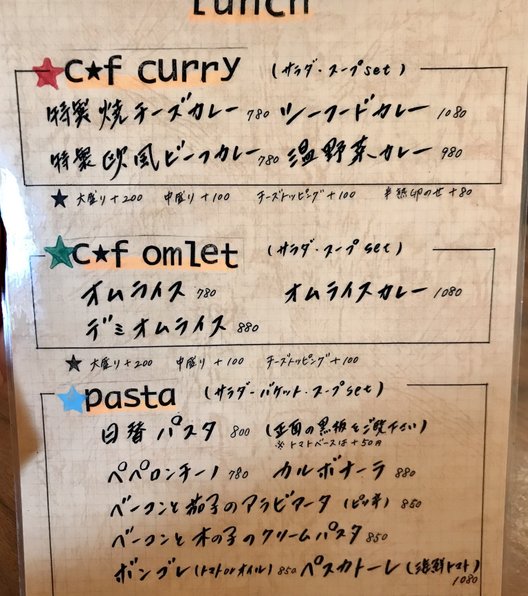 Lunch
c★f curry (サラダ・スープset)
特製焼チーズカレー 780 シーフードカレー 1080
特製欧風ビーフカレー 780 温野菜カレー 980
★ 大盛り+200 中盛り+100 チーズトッピング+100 半熟卵のせ+80
c★f omlet (サラダ・スープset)
オムライス 780 オムライスカレー 1080
デミオムライス 880
★ 大盛り+200 中盛り+100 チーズトッピング+100
pasta (サラダ・バケット・スープset)
日替パスタ 800 (正面の黒板をご覧下さい)
※トマトベースは+50円
ペペロンチーノ 780 カルボナーラ 880
ベーコンと茄子のアラビアータ (ピリ辛) 850
ベーコンと木の子のクリームパスタ 850
ボンゴレ (トマトorオイル) 850 ペスカトーレ (海鮮トマト)
1080